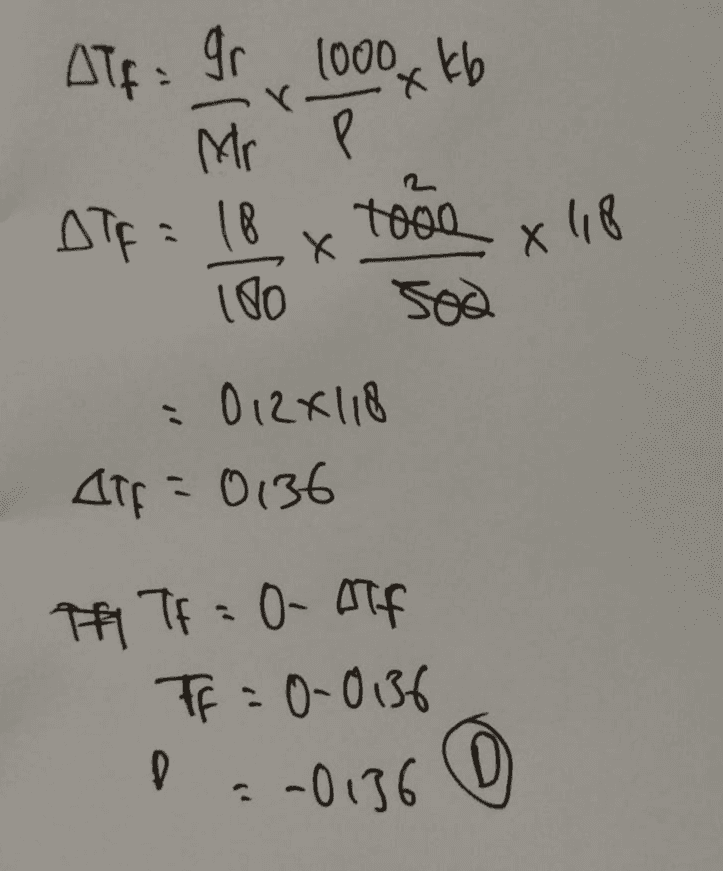 ΔTf = gr/Mr x 1000/P x kb
ΔTf = 18/180 x 1000/500 2 x 1,8
= 0,2 x 1,8
ΔTf = 0,36
Tf = 0 - ΔTf
Tf = 0 - 0,36
= -0,36 D